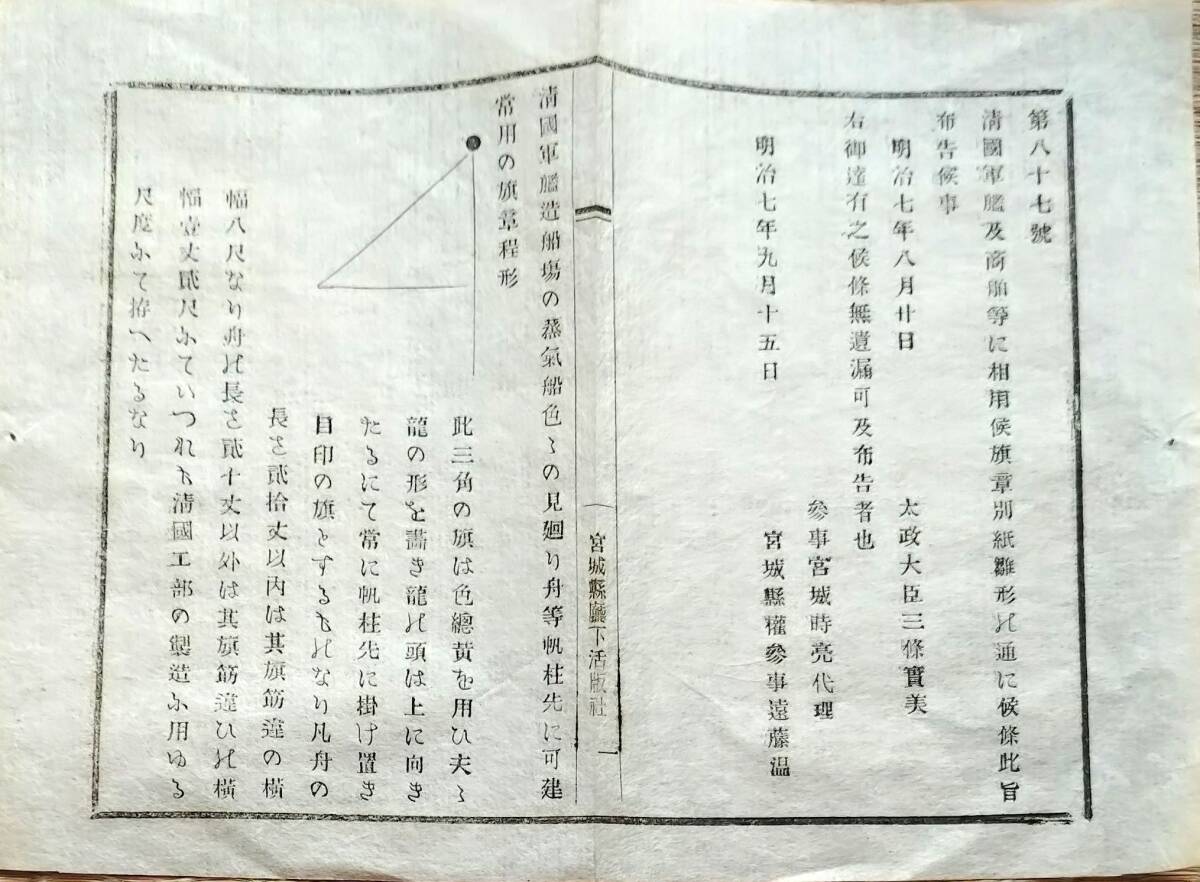 第八十七號
淸國軍艦及商舶等に相用候旗章別紙雛形の通に候條此旨
布告候事
明治七年八月廿日
太政大臣三條實美
右御達有之候條無遺漏可及布告者也
參事宮城時亮代理
明治七年九月十五日
宮城縣權參事遠藤温
宮城縣廳下活版社
一
淸國軍艦造船塲の蒸氣船色〻の見廻り舟等帆柱先に可建
常用の旗章程形
此三角の旗は色總黄を用ひ夫〻
龍の形を畵き龍の頭は上に向き
たるにて常に帆柱先に掛け置き
目印の旗とするものなり凡舟の
長さ貮拾丈以内は其旗筋違の横
幅八尺なり舟の長さ貮十丈以外は其旗筋違ひの横
幅壹丈貮尺にていつれも淸國工部の製造に用ゆる
尺度にて拵へたるなり